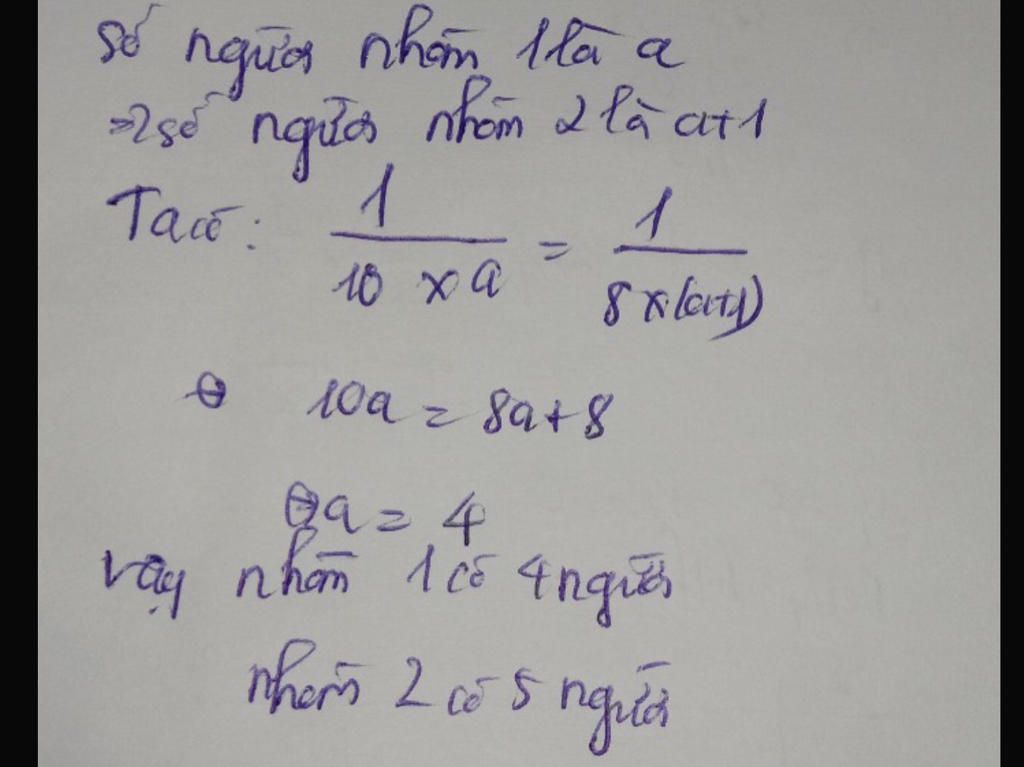 Số người nhóm 1 là a
=> số người nhóm 2 là a+1
Ta có: 1/(10 x a) = 1/(8 x (a+1))
⇔ 10a = 8a + 8
⇔ a = 4
Vậy nhóm 1 có 4 người
nhóm 2 có 5 người